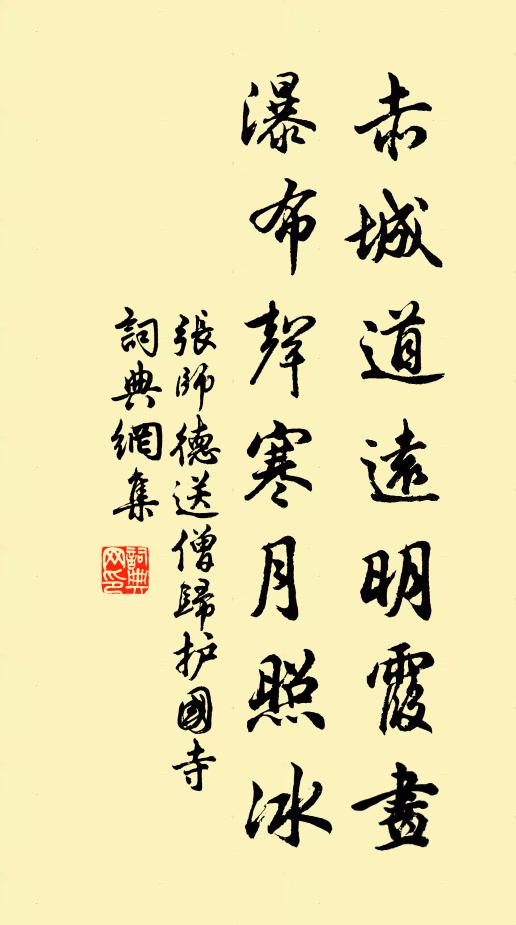 赤城道遠明霞晝
瀑布聲寒月照冰
張師德送僧歸护國寺
詞典網集
詞典網印